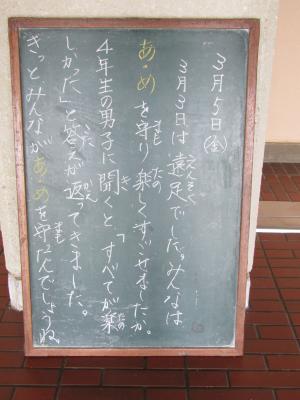 3月5日(金)
3月3日は遠足でした。みんなは
あ・めを守り楽しくすごせましたか。
4年生の男子に聞くと「すべてが楽
しかった」と答えが返ってきました。
きっとみんながあ・めを守たんでしょうね。